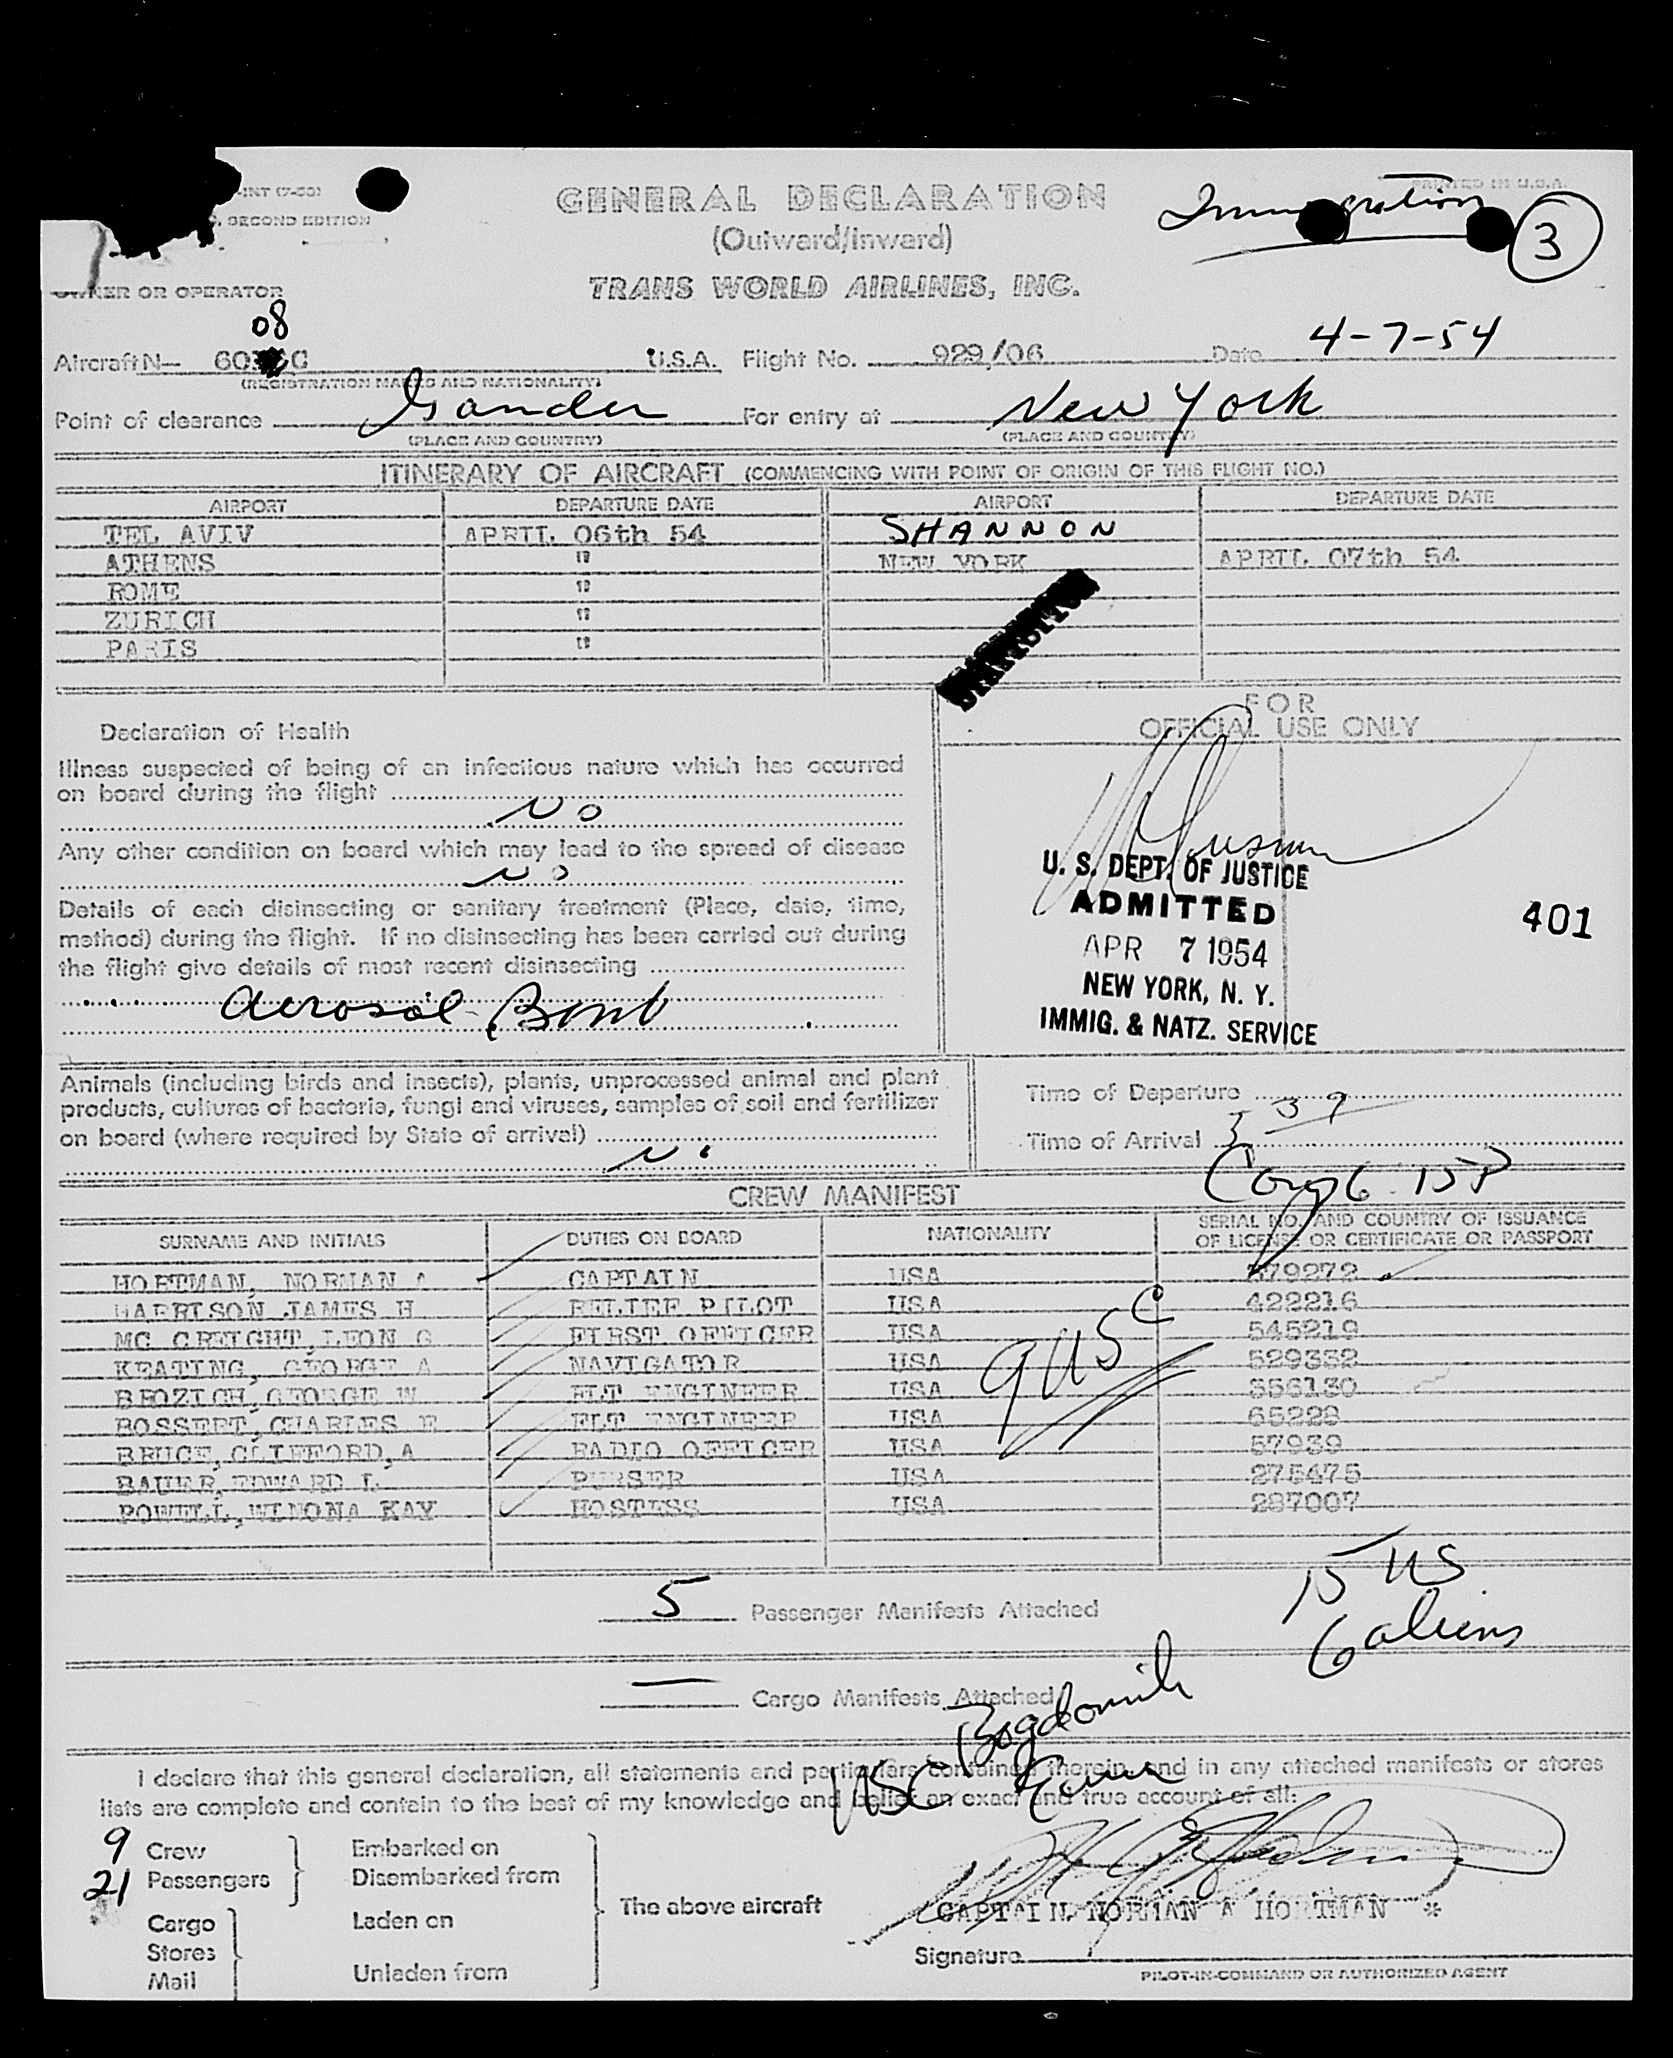 -INT (7-50)
SECOND EDITION
GENERAL DECLARATION
(Outward/Inward)
TRANS WORLD AIRLINES, INC.
PRINTED IN U.S.A.
Immigration 3
OWNER OR OPERATOR
08
Aircraft N— 60 C U.S.A. Flight No. 929/06 Date 4-7-54
(REGISTRATION MARKS AND NATIONALITY)
Point of clearance Gander For entry at New York
(PLACE AND COUNTRY) (PLACE AND COUNTRY)
ITINERARY OF AIRCRAFT (COMMENCING WITH POINT OF ORIGIN OF THIS FLIGHT NO.)
AIRPORT DEPARTURE DATE AIRPORT DEPARTURE DATE
TEL AVIV APRIL 06th 54 SHANNON
ATHENS " NEW YORK APRIL 07th 54
ROME "
ZURICH "
PARIS "
FOR
OFFICIAL USE ONLY
Declaration of Health
Illness suspected of being of an infectious nature which has occurred
on board during the flight
No
Any other condition on board which may lead to the spread of disease
No
Details of each disinsecting or sanitary treatment (Place, date, time,
method) during the flight. If no disinsecting has been carried out during
the flight give details of most recent disinsecting
Aerosol Bomb
U. S. DEPT. OF JUSTICE
ADMITTED
APR 7 1954
NEW YORK, N. Y.
IMMIG. & NATZ. SERVICE
401
Animals (including birds and insects), plants, unprocessed animal and plant
products, cultures of bacteria, fungi and viruses, samples of soil and fertilizer
on board (where required by State of arrival)
No
Time of Departure
Time of Arrival 5 39
CREW MANIFEST
SURNAME AND INITIALS DUTIES ON BOARD NATIONALITY SERIAL NO. AND COUNTRY OF ISSUANCE
OF LICENSE OR CERTIFICATE OR PASSPORT
HORTMAN, NORMAN A CAPTAIN USA 379272
HARRISON JAMES H RELIEF PILOT USA 422216
MC CREIGHT, LEON G FIRST OFFICER USA 545219
KEATING, GEORGE A NAVIGATOR USA 529332
BROZICH, GEORGE W FLT ENGINEER USA 356130
BOSSERT, CHARLES E FLT ENGINEER USA 65228
BRUCE, CLIFFORD, A RADIO OFFICER USA 57939
BAUER, EDWARD L PURSER USA 275475
POWELL, WINONA KAY HOSTESS USA 287007
9 USC
5 Passenger Manifests Attached
15 US
6 aliens
— Cargo Manifests Attached
USC
I declare that this general declaration, all statements and particulars contained therein, and in any attached manifests or stores
lists are complete and contain to the best of my knowledge and belief an exact and true account of all:
9 Crew Embarked on
21 Passengers Disembarked from
The above aircraft
Cargo Laden on
Stores
Mail Unladen from
CAPTAIN NORMAN A HORTMAN *
Signature
PILOT-IN-COMMAND OR AUTHORIZED AGENT